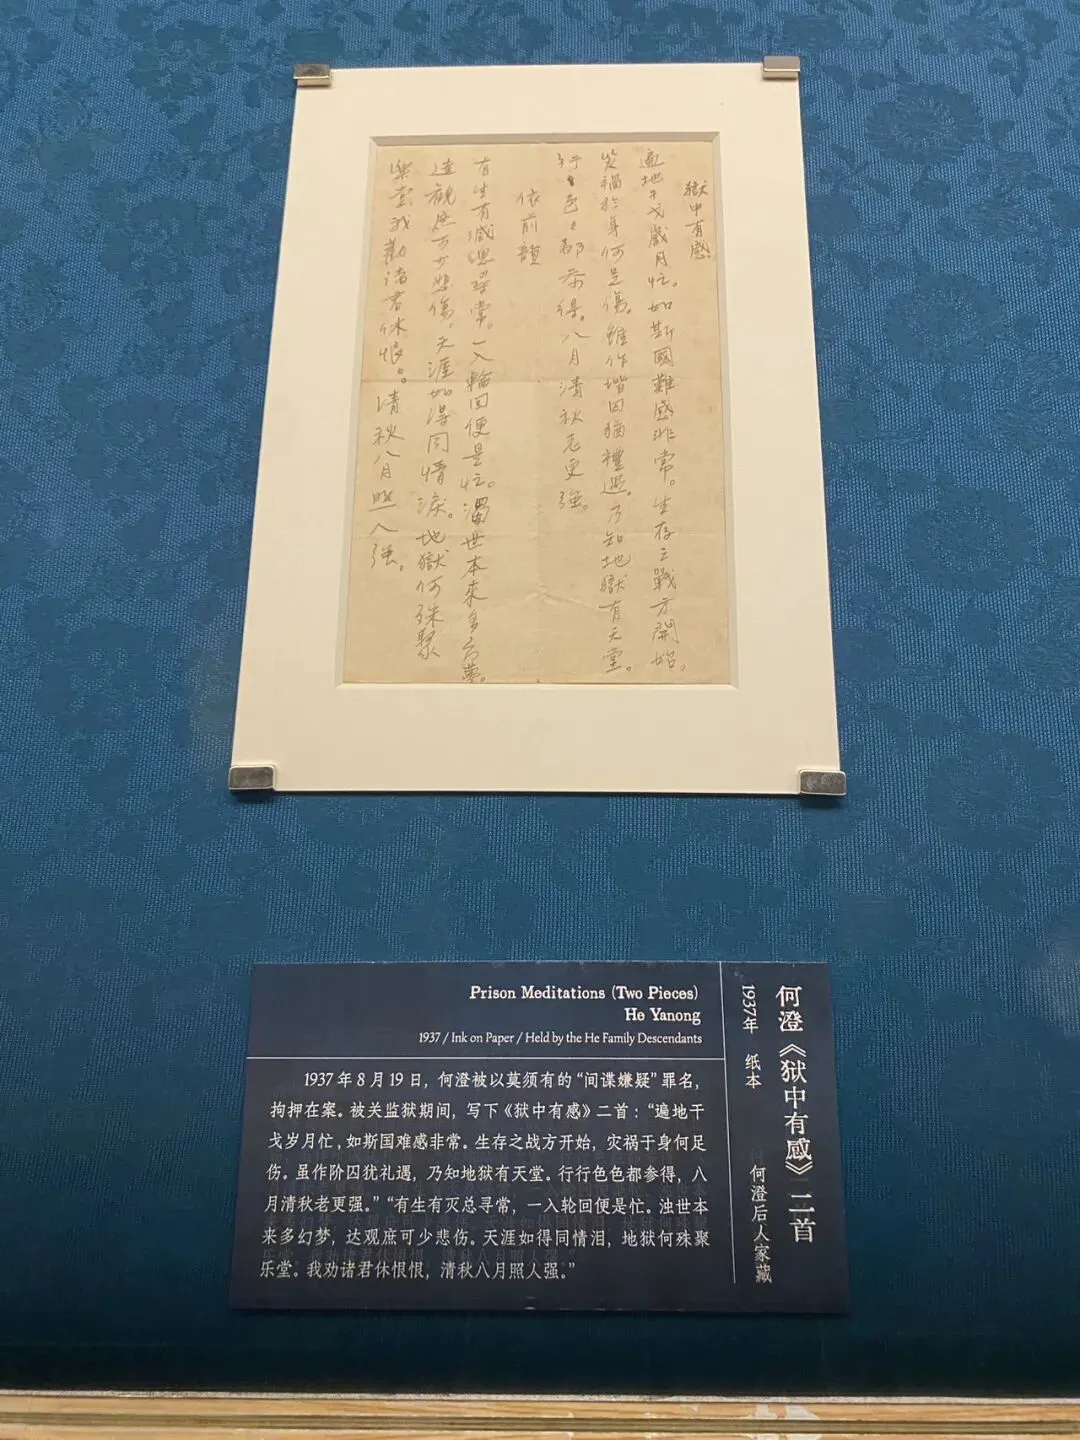 獄中有感
遍地干戈歲月忙。如斯國難感非常。生存之戰方開始。
災禍於身何足傷。雖作堦囚猶禮遇。乃知地獄有天堂。
行々色々都參得。八月清秋老更強。
依前韻
有生有滅總尋常。一入輪回便是忙。濁世本來多幻夢。
達觀庶可少悲傷。天涯如得同情淚。地獄何殊聚
樂堂我勸諸君休恨々。清秋八月照人強。
Prison Meditations (Two Pieces)
He Yanong
1937 / Ink on Paper / Held by the He Family Descendants
何澄《狱中有感》二首
1937年 纸本 何澄后人家藏
1937年8月19日，何澄被以莫须有的“间谍嫌疑”罪名，
拘押在案。被关监狱期间，写下《狱中有感》二首：“遍地干
戈岁月忙，如斯国难感非常。生存之战方开始，灾祸于身何足
伤。虽作阶囚犹礼遇，乃知地狱有天堂。行行色色都参得，八
月清秋老更强。”“有生有灭总寻常，一入轮回便是忙。浊世本
来多幻梦，达观庶可少悲伤。天涯如得同情泪，地狱何殊聚
乐堂。我劝诸君休恨恨，清秋八月照人强。”